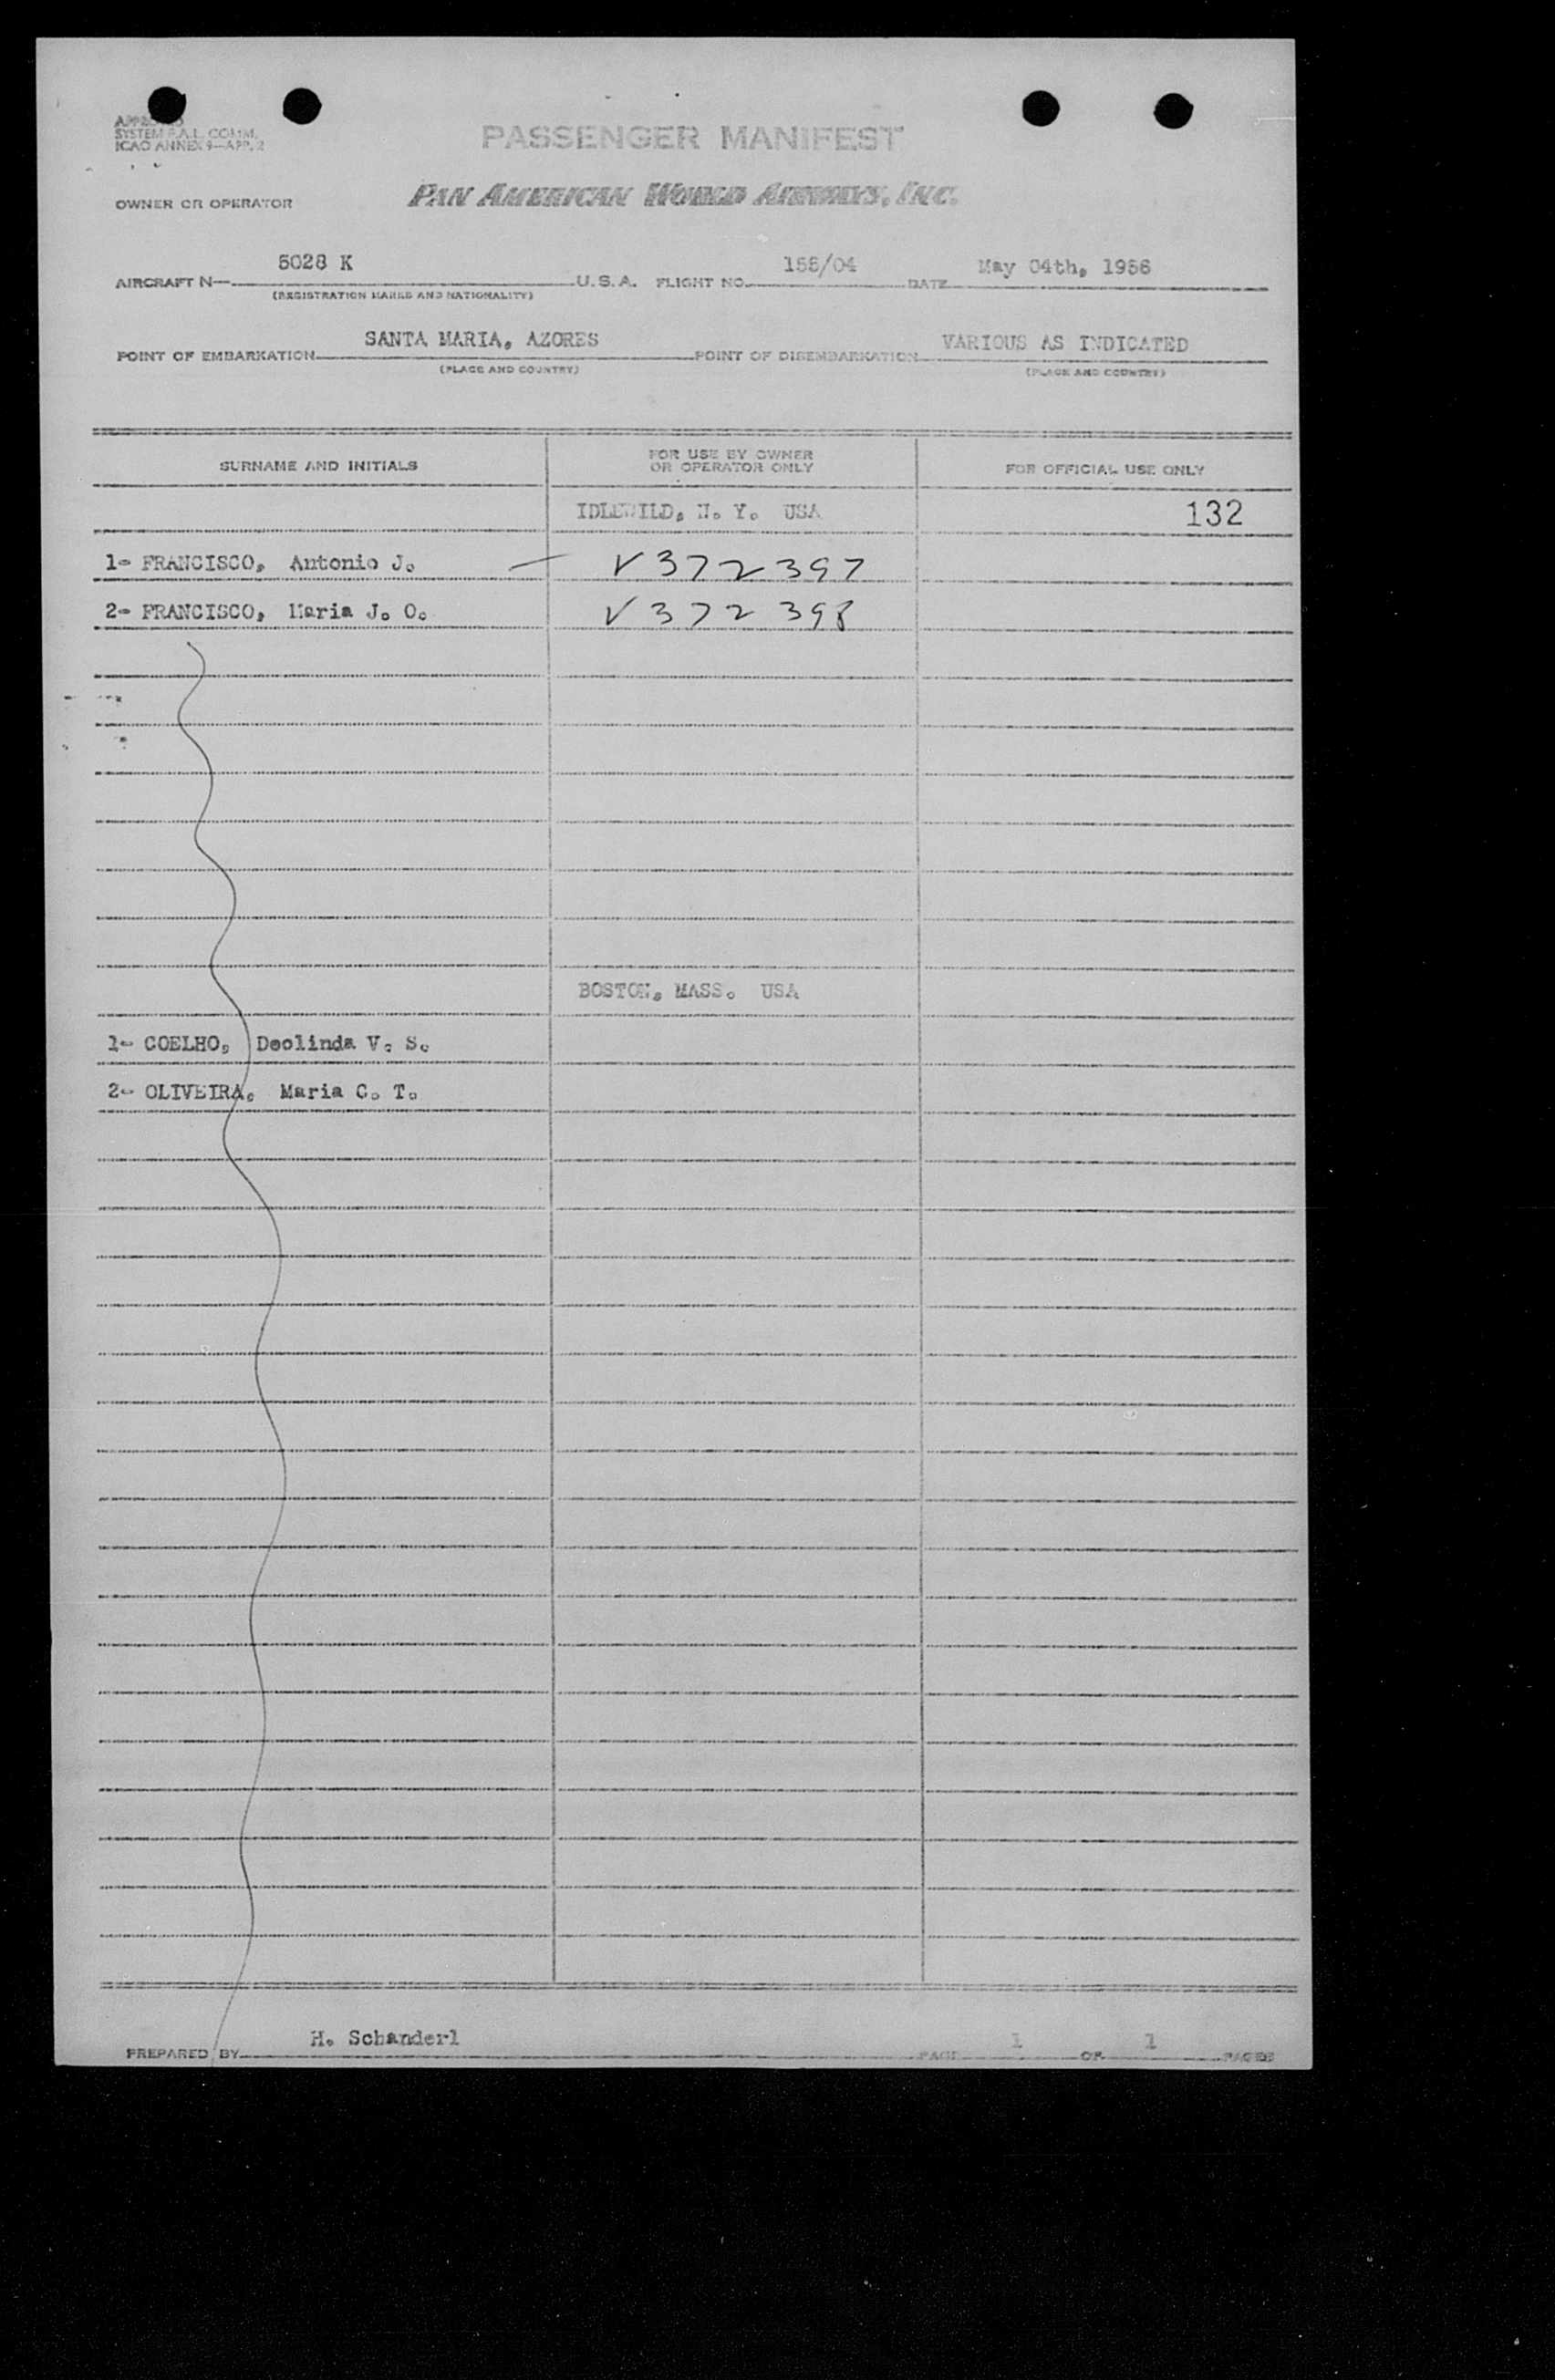 APPROVED
SYSTEM F.A.L. COMM.
ICAO ANNEX 9—APP. 2
PASSENGER MANIFEST
OWNER OR OPERATOR PAN AMERICAN WORLD AIRWAYS, INC.
AIRCRAFT N— 5028 K U.S.A. FLIGHT NO. 156/04 DATE May 04th, 1956
(REGISTRATION MARKS AND NATIONALITY)
POINT OF EMBARKATION SANTA MARIA, AZORES POINT OF DISEMBARKATION VARIOUS AS INDICATED
(PLACE AND COUNTRY) (PLACE AND COUNTRY)
SURNAME AND INITIALS FOR USE BY OWNER OR OPERATOR ONLY FOR OFFICIAL USE ONLY
IDLEWILD, N. Y. USA 132
1- FRANCISCO, Antonio J. — V 372 397
2- FRANCISCO, Maria J. O. V 372 398
BOSTON, MASS. USA
1- COELHO, Deolinda V. S.
2- OLIVEIRA, Maria C. T.
PREPARED BY H. Schanderl PAGE 1 OF 1 PAGES